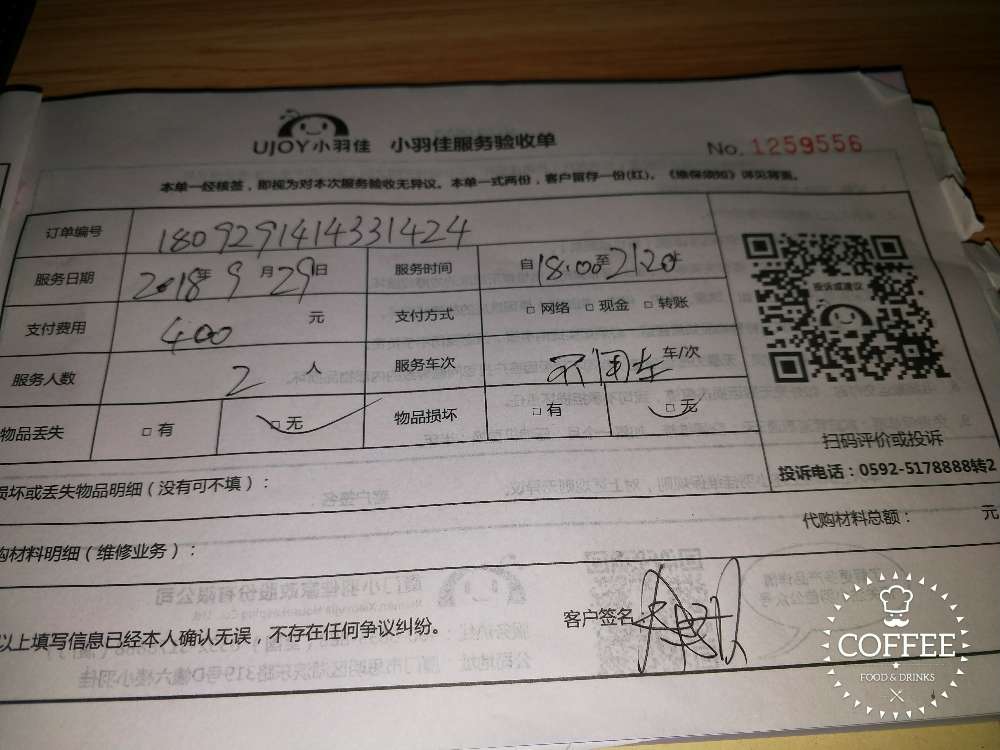 UJOY小羽佳 小羽佳服务验收单 No. 1259556
本单一经核签，即视为对本次服务验收无异议。本单一式两份，客户留存一份(红)。《维保须知》详见背面。
订单编号 180929141433142​4
服务日期 2018年9月29日 服务时间 自18:00至21:20止
支付费用 400 元 支付方式 □ 网络 □ 现金 □ 转账
服务人数 2 人 服务车次 不用车 车/次
物品丢失 □ 有 □ 无 物品损坏 □ 有 □ 无
投诉或建议
扫码评价或投诉
投诉电话：0592-5178888转2
损坏或丢失物品明细（没有可不填）：
代购材料总额： 元
购材料明细（维修业务）：
以上填写信息已经本人确认无误，不存在任何争议纠纷。
客户签名
COFFEE
FOOD & DRINKS